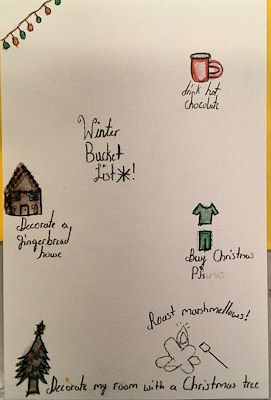 drink hot
chocolate
Winter
Bucket
List*!
Decorate a
gingerbread
house
Buy Christmas
PJs
Roast marshmellows!
Decorate my room with a Christmas tree